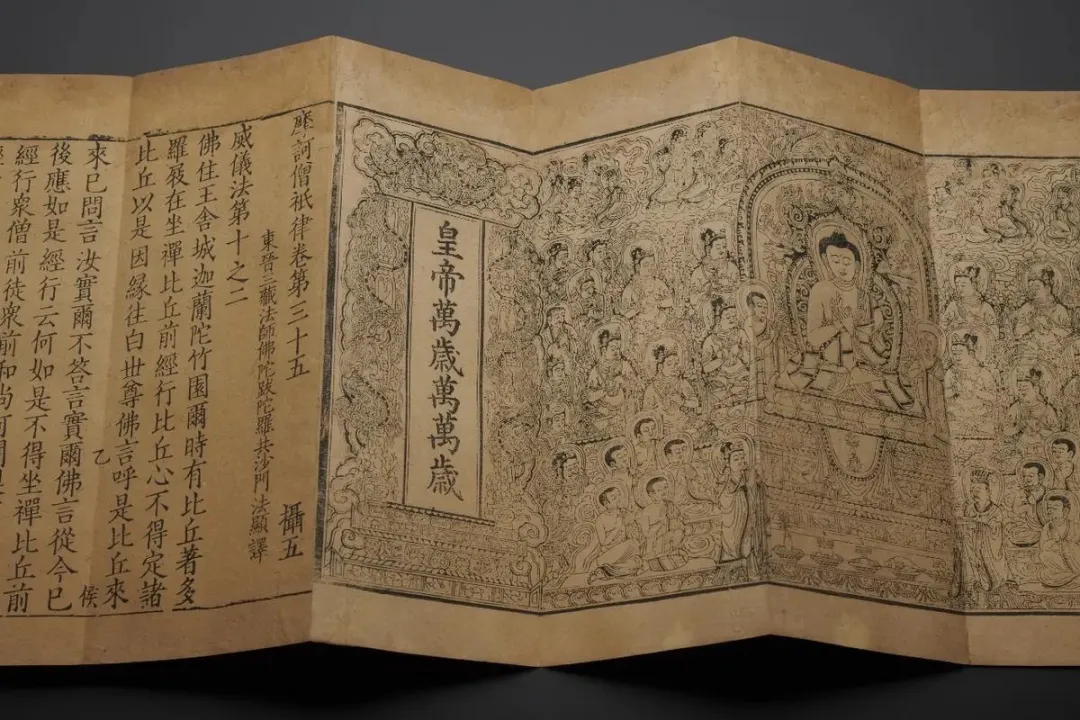 皇帝萬歳萬萬歳
摩訶僧祇律卷第三十五 攝五
東晉三藏法師佛陀跋陀羅共沙門法顯譯
威儀法第十之二
佛住王舍城迦蘭陀竹園爾時有比丘著多
羅屐在坐禪比丘前經行比丘心不得定諸
比丘以是因緣往白世尊佛言呼是比丘來
乙 俟
來已問言汝實爾不答言實爾佛言從今已
後應如是經行云何如是不得坐禪比丘前
經行衆僧前徒衆前和尚阿闍